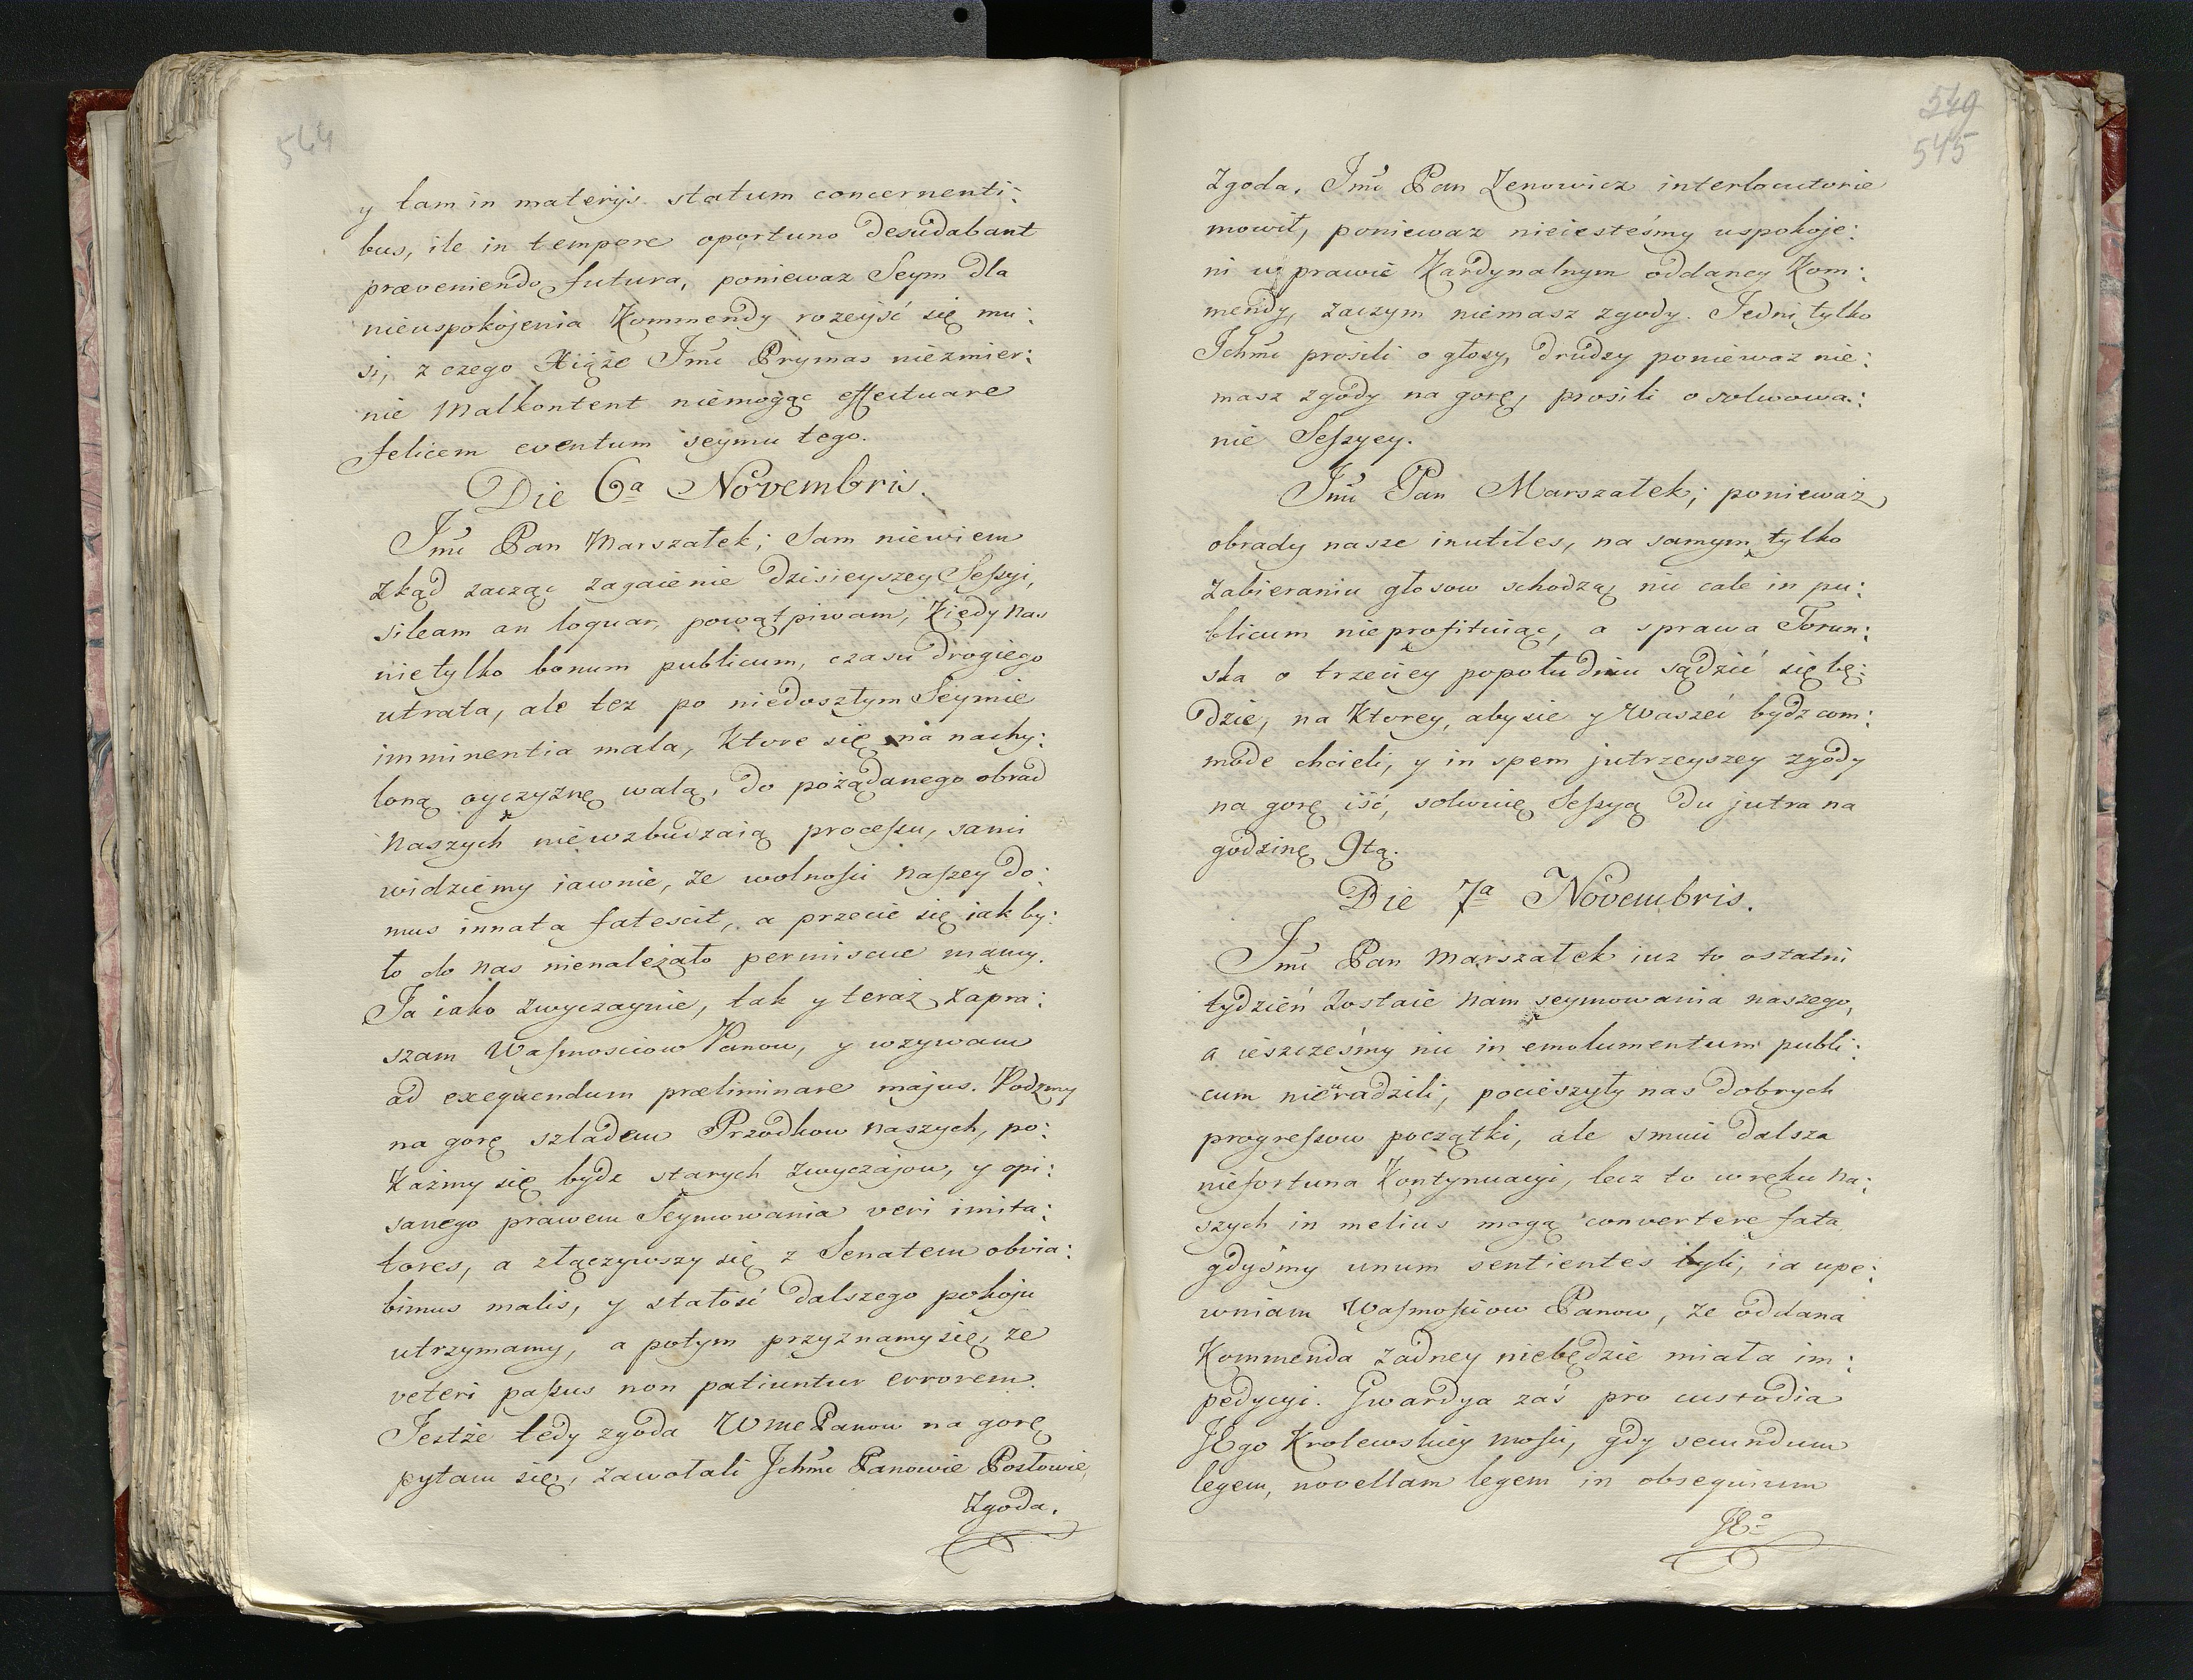 544
y tam in materyis statum concernenti:
bus, ile in tempore oportuno desudabant
præveniendo futura, poniewaz Seym dla
nieuspokojenia Kommendy rozeyść się mu:
si, z czego Xiąże Jmć Prymas niezmier:
nie Malkontent niemogąc effectuare
felicem eventum seymu tego.
Die 6a Novembris.
Jmć Pan Marszałek; Sam niewiem
zkąd zacząc zagaienie dzisieyszey Sessyi,
sileam an loquar, powątpiwam, Kiedy nas
nietylko bonum publicum, czasu drogiego
utrata, ale tez po niedoszłym Seymie
imminentia mala, Ktore się na nachy:
loną oyczyznę walą, do pożądanego obrad
naszych niewzbudzaią processu, sami
widziemy iawnie, ze wolności naszey do:
mus innata fatescit, a przecie się iak by:
to do nas nienależało permiscue mamy.
Ja iako zwyczaynie, tak y teraz zapra:
szam Wasmosciow Panow, y wzywam
ad exequendum præliminare majus. Podzmy
na gorę szladem Przodkow naszych, po:
każmy się bydz starych zwyczajow, y opi:
sanego prawem Seymowania veri imita:
tores, a złączywszy się z Senatem obvia:
bimus malis, y stałość dalszego pokoju
utrzymamy, a potym przyznamy się, ze
veteri passus non patiuntur errorem.
Jestże tedy zgoda WmcPanow na gorę
pytam się, zawołali Jchmć Panowie Posłowie,
Zgoda.
549
545
Zgoda. Jmć Pan Zenowicz interlocutorie
mowił, poniewaz nieiesteśmy uspokoje:
ni w prawie Kardynalnym oddaney Kom:
mendy, zaczym niemasz zgody. Jedni tylko
Jchmć prosili o głosy, drudzy poniewaz nie:
masz zgody na gorę, prosili o solwowa:
nie Sessyey.
Jmć Pan Marszałek; ponieważ
obrady nasze inutiles, na samym tylko
zabieraniu głosow schodzą nic cale in pu:
blicum nieprofituiąc, a sprawa Torun:
ska o trzeciey popołudniu sądzić się bę:
dzie, na Ktorey, abyscie y Waszeć bydz com:
mode chcieli, y in spem jutrzeyszey zgody
na gorę iść, solwuię Sessyą du jutra na
godzinę 9tą.
Die 7a Novembris.
Jmć Pan Marszałek iuz to ostatni
tydzień zostaie nam seymowania naszego,
a ieszcześmy nic in emolumentum publi:
cum nieuradzili, pocieszyły nas dobrych
progressow początki, ale smuci dalsza
niefortuna Kontynuacyi, lecz to w ręku na:
szych in melius mogą convertere fata
gdyśmy unum sentientes byli, ia upe:
wniam Wasmosciow Panow, ze oddana
Kommenda zadney niebędzie miała im:
pedycyi. Gwardya zaś pro custodia
JEgo Krolewskiey mości, gdy secundum
legem, novellam legem in obsequium
JEo